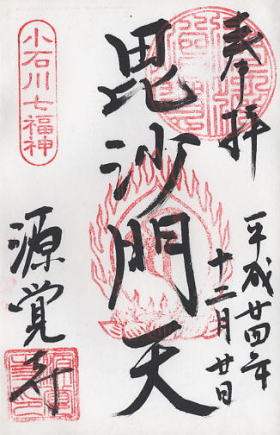 奉拝
平成廿四年
十二月廿日
毘沙門天
小石川七福神
源覚寺